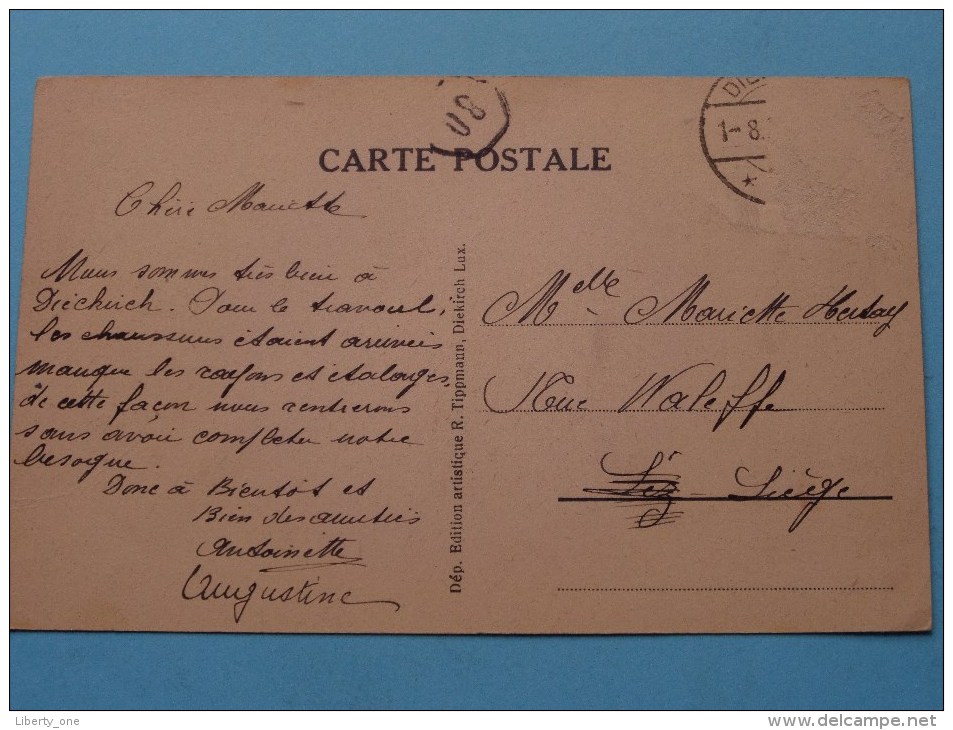 08
DIE
1-8.
CARTE POSTALE
Chère Mariette
Nous sommes très bien à
Diechirch. Pour le travail,
les chaussures étaient arrivées
manque les rayons et étalages,
de cette façon nous rentrerons
sans avoir completer notre
besogne.
Donc à Bientôt et
Bien des amitiés
Antoinette
Augustine
Dép. Edition artistique R. Tippmann, Diekirch Lux.
Melle - Mariette
Rue Waleffe
Liég - Liège
Liberty_one
delcampe.net